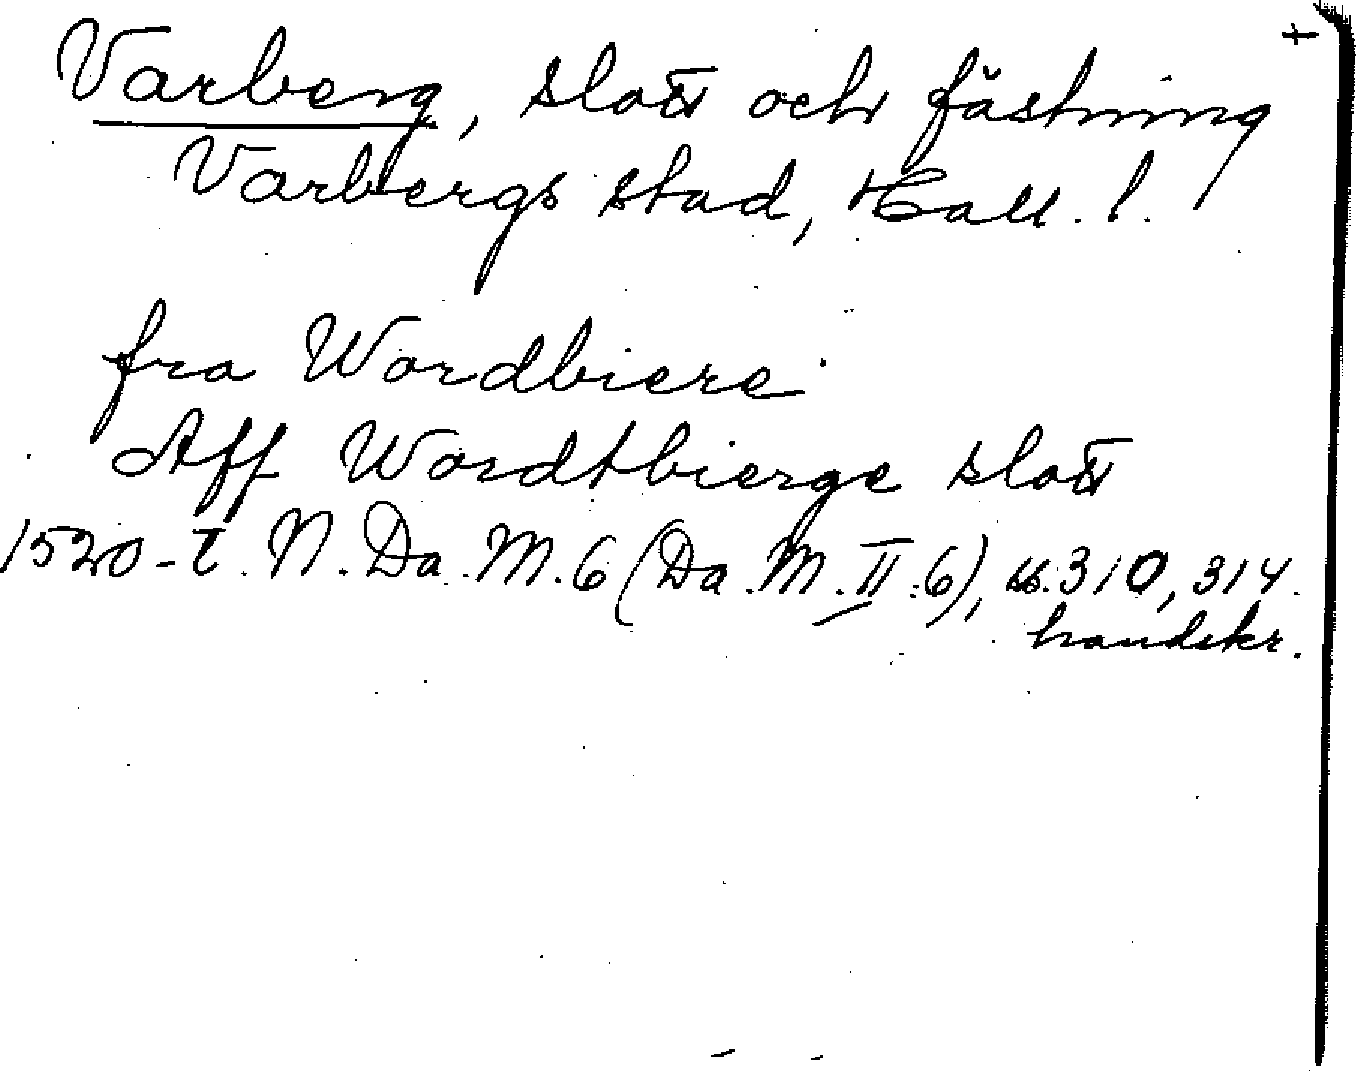 +
Varberg, slott och fästning
Varbergs stad, Hall. l.
fra Wordbiere
Aff Wordtbierge slott
1520-t. N. Da. M. 6 (Da. M. II. 6), ss. 310, 314.
handskr.